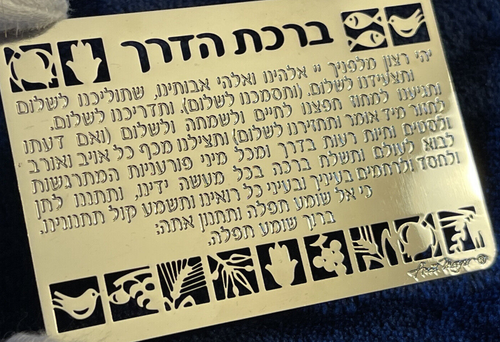 ברכת הדרך
יהי רצון מלפניך יי אלהינו ואלהי אבותינו, שתוליכנו לשלום
ותצעידנו לשלום. (ותסמכנו לשלום), ותדריכנו לשלום,
ותגיענו למחוז חפצנו לחיים ולשמחה ולשלום (ואם דעתו
לחזור מיד אומר ותחזירנו לשלום) ותצילנו מכף כל אויב ואורב
ולסטים וחיות רעות בדרך ומכל מיני פורעניות המתרגשות
לבוא לעולם ותשלח ברכה בכל מעשה ידינו, ותתננו לחן
ולחסד ולרחמים בעיניך ובעיני כל רואינו ותשמע קול תחנונינו.
כי אל שומע תפלה ותחנון אתה:
ברוך שומע תפלה.